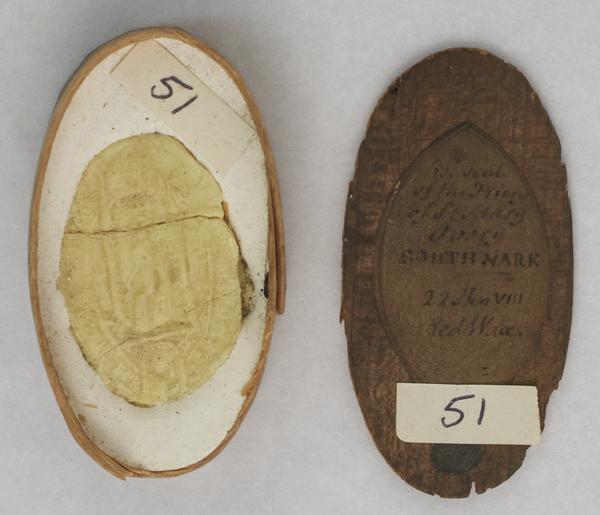 51
of the Priory
of St. Mary
Overy
SOUTHWARK
22 Hen VIII
Red Wax.
51